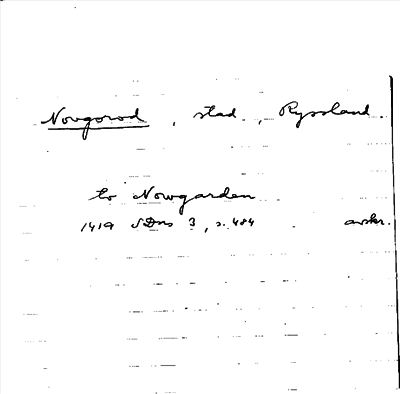 Novgorod, stad, Ryssland.
to Nowgarden
1419 SDns 3, s. 484 avskr.